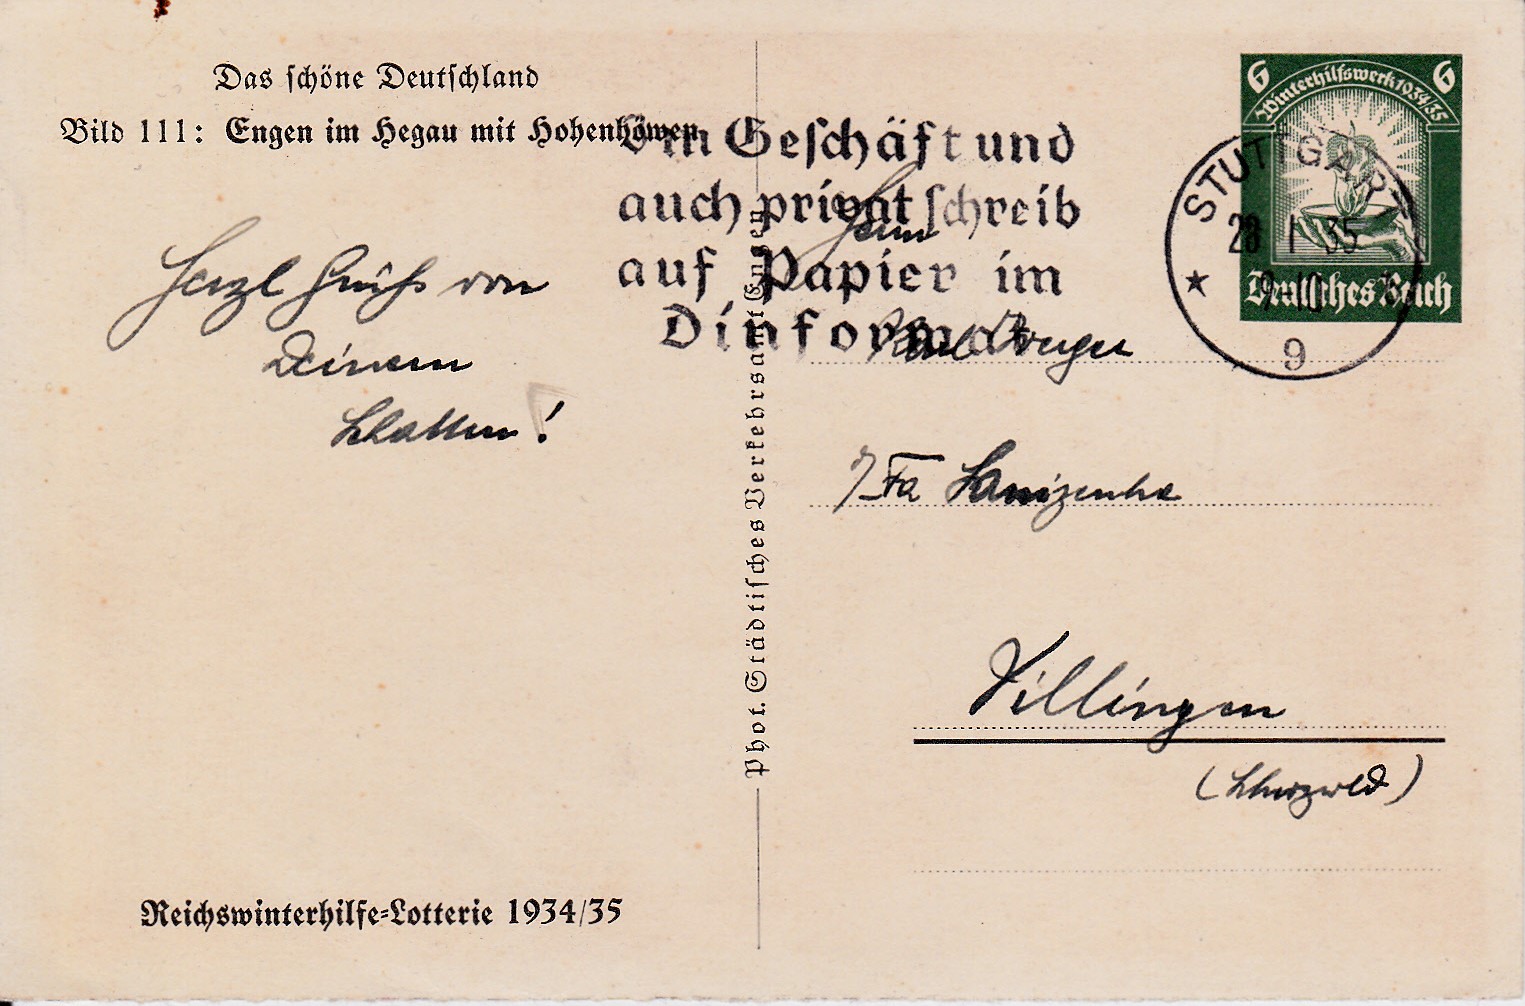 Das schöne Deutschland
Bild 111: Engen im Hegau mit Hohenhöwen
Herzl Grüße von
Deinem
!
Reichswinterhilfe-Lotterie 1934/35
Phot. Städtisches Verkehrsamt Engen
Im Geschäft und
auch privat schreib
auf Papier im
Dinformat
6 6
Winterhilfswerk 1934/35
Deutsches Reich
STUTTGART
28 1 35
9-10
9
Herrn
Fa
Villingen
(Schwzwld)